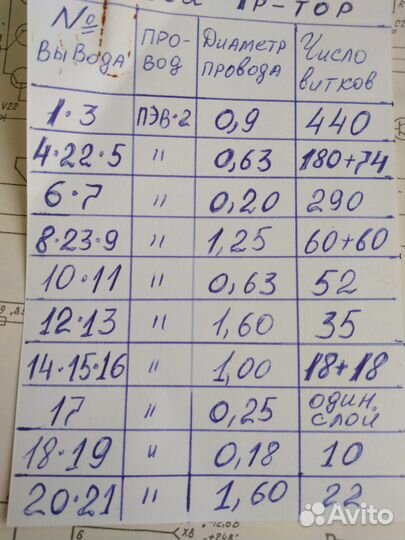 ТР-ТОР
№ вывода | ПРО-ВОД | Диаметр провода | Число витков
1·3 | ПЭВ-2 | 0,9 | 440
4·22·5 | " | 0,63 | 180+74
6·7 | " | 0,20 | 290
8·23·9 | " | 1,25 | 60+60
10·11 | " | 0,63 | 52
12·13 | " | 1,60 | 35
14·15·16 | " | 1,00 | 18+18
17 | " | 0,25 | один. слой
18·19 | " | 0,18 | 10
20·21 | " | 1,60 | 22
V22
6
X8
Avito